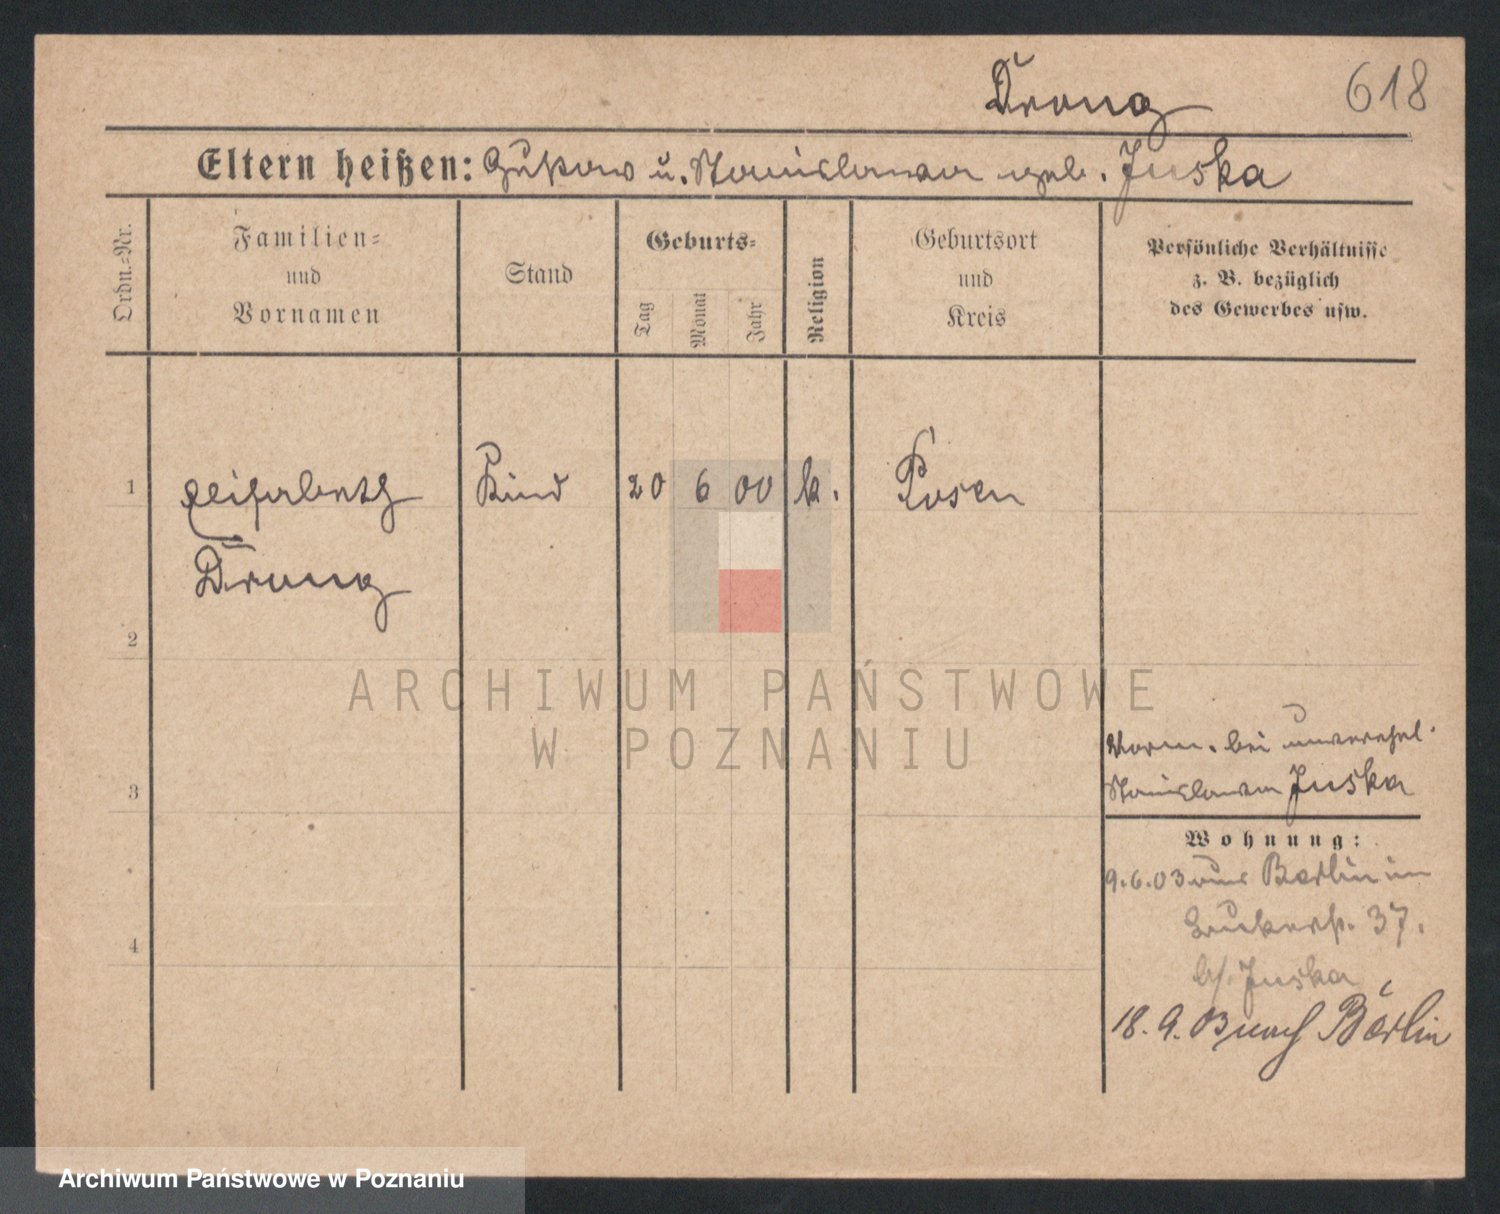 Drong
618
Eltern heißen: Gustav u. Stanislawa geb. Juska
Ordn.-Nr.
Familien-
und
Vornamen
Stand
Geburts-
Tag
Monat
Jahr
Religion
Geburtsort
und
Kreis
Persönliche Verhältnisse
z. B. bezüglich
des Gewerbes usw.
1
Elisabeth
Kind
20 6 00
k.
Posen
Drong
2
ARCHIWUM PAŃSTWOWE
W POZNANIU
3
Vorm. bei unverehel.
Stanislawa Juska
Wohnung:
9.6.03 aus Berlin in
37.
b/. Juska
4
18. 9. 03 nach Berlin
Archiwum Państwowe w Poznaniu